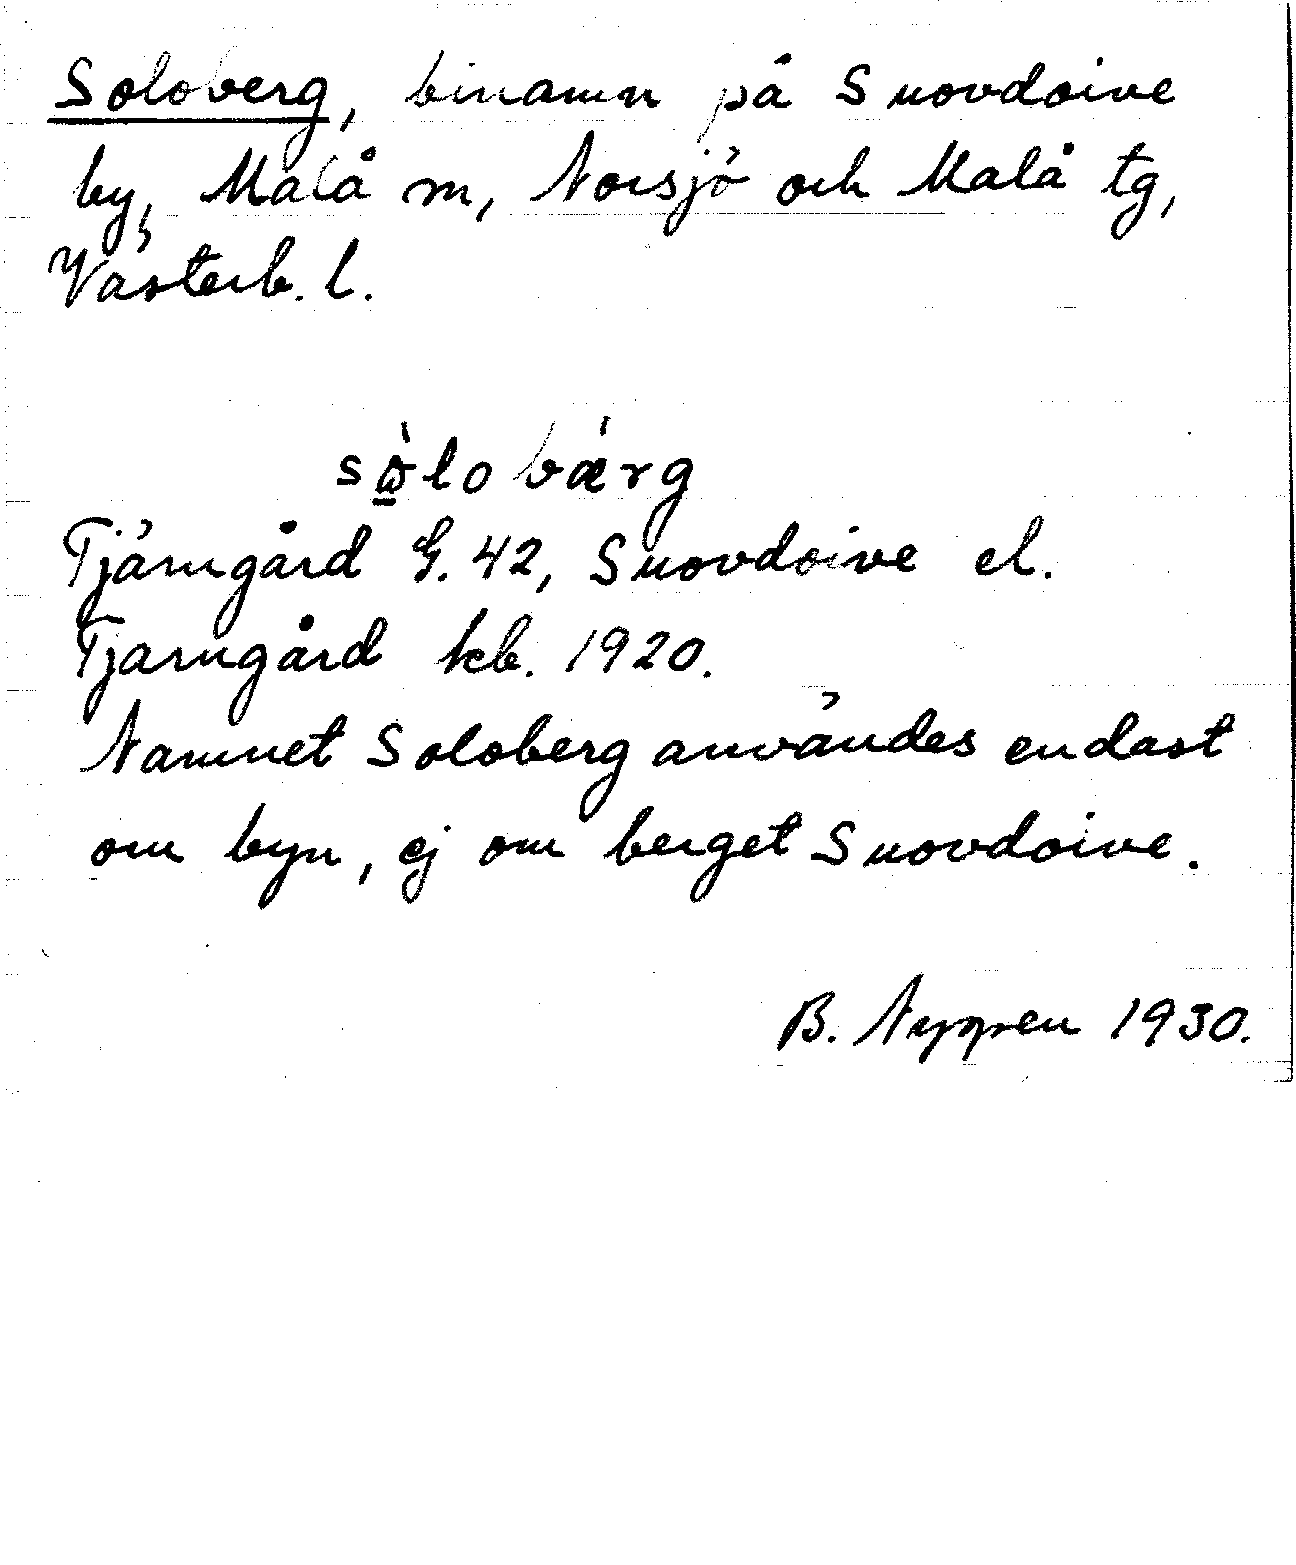 Soloberg, binamn på Snovdoive
by, Malå m, Norsjö och Malå tg,
Västerb. l.
sòlobǽrg
Tjärngård G. 42, Snovdoive el.
Tjärngård kb. 1920.
Namnet Soloberg användes endast
om byn, ej om berget Snovdoive.
B. Nyppen 1930.